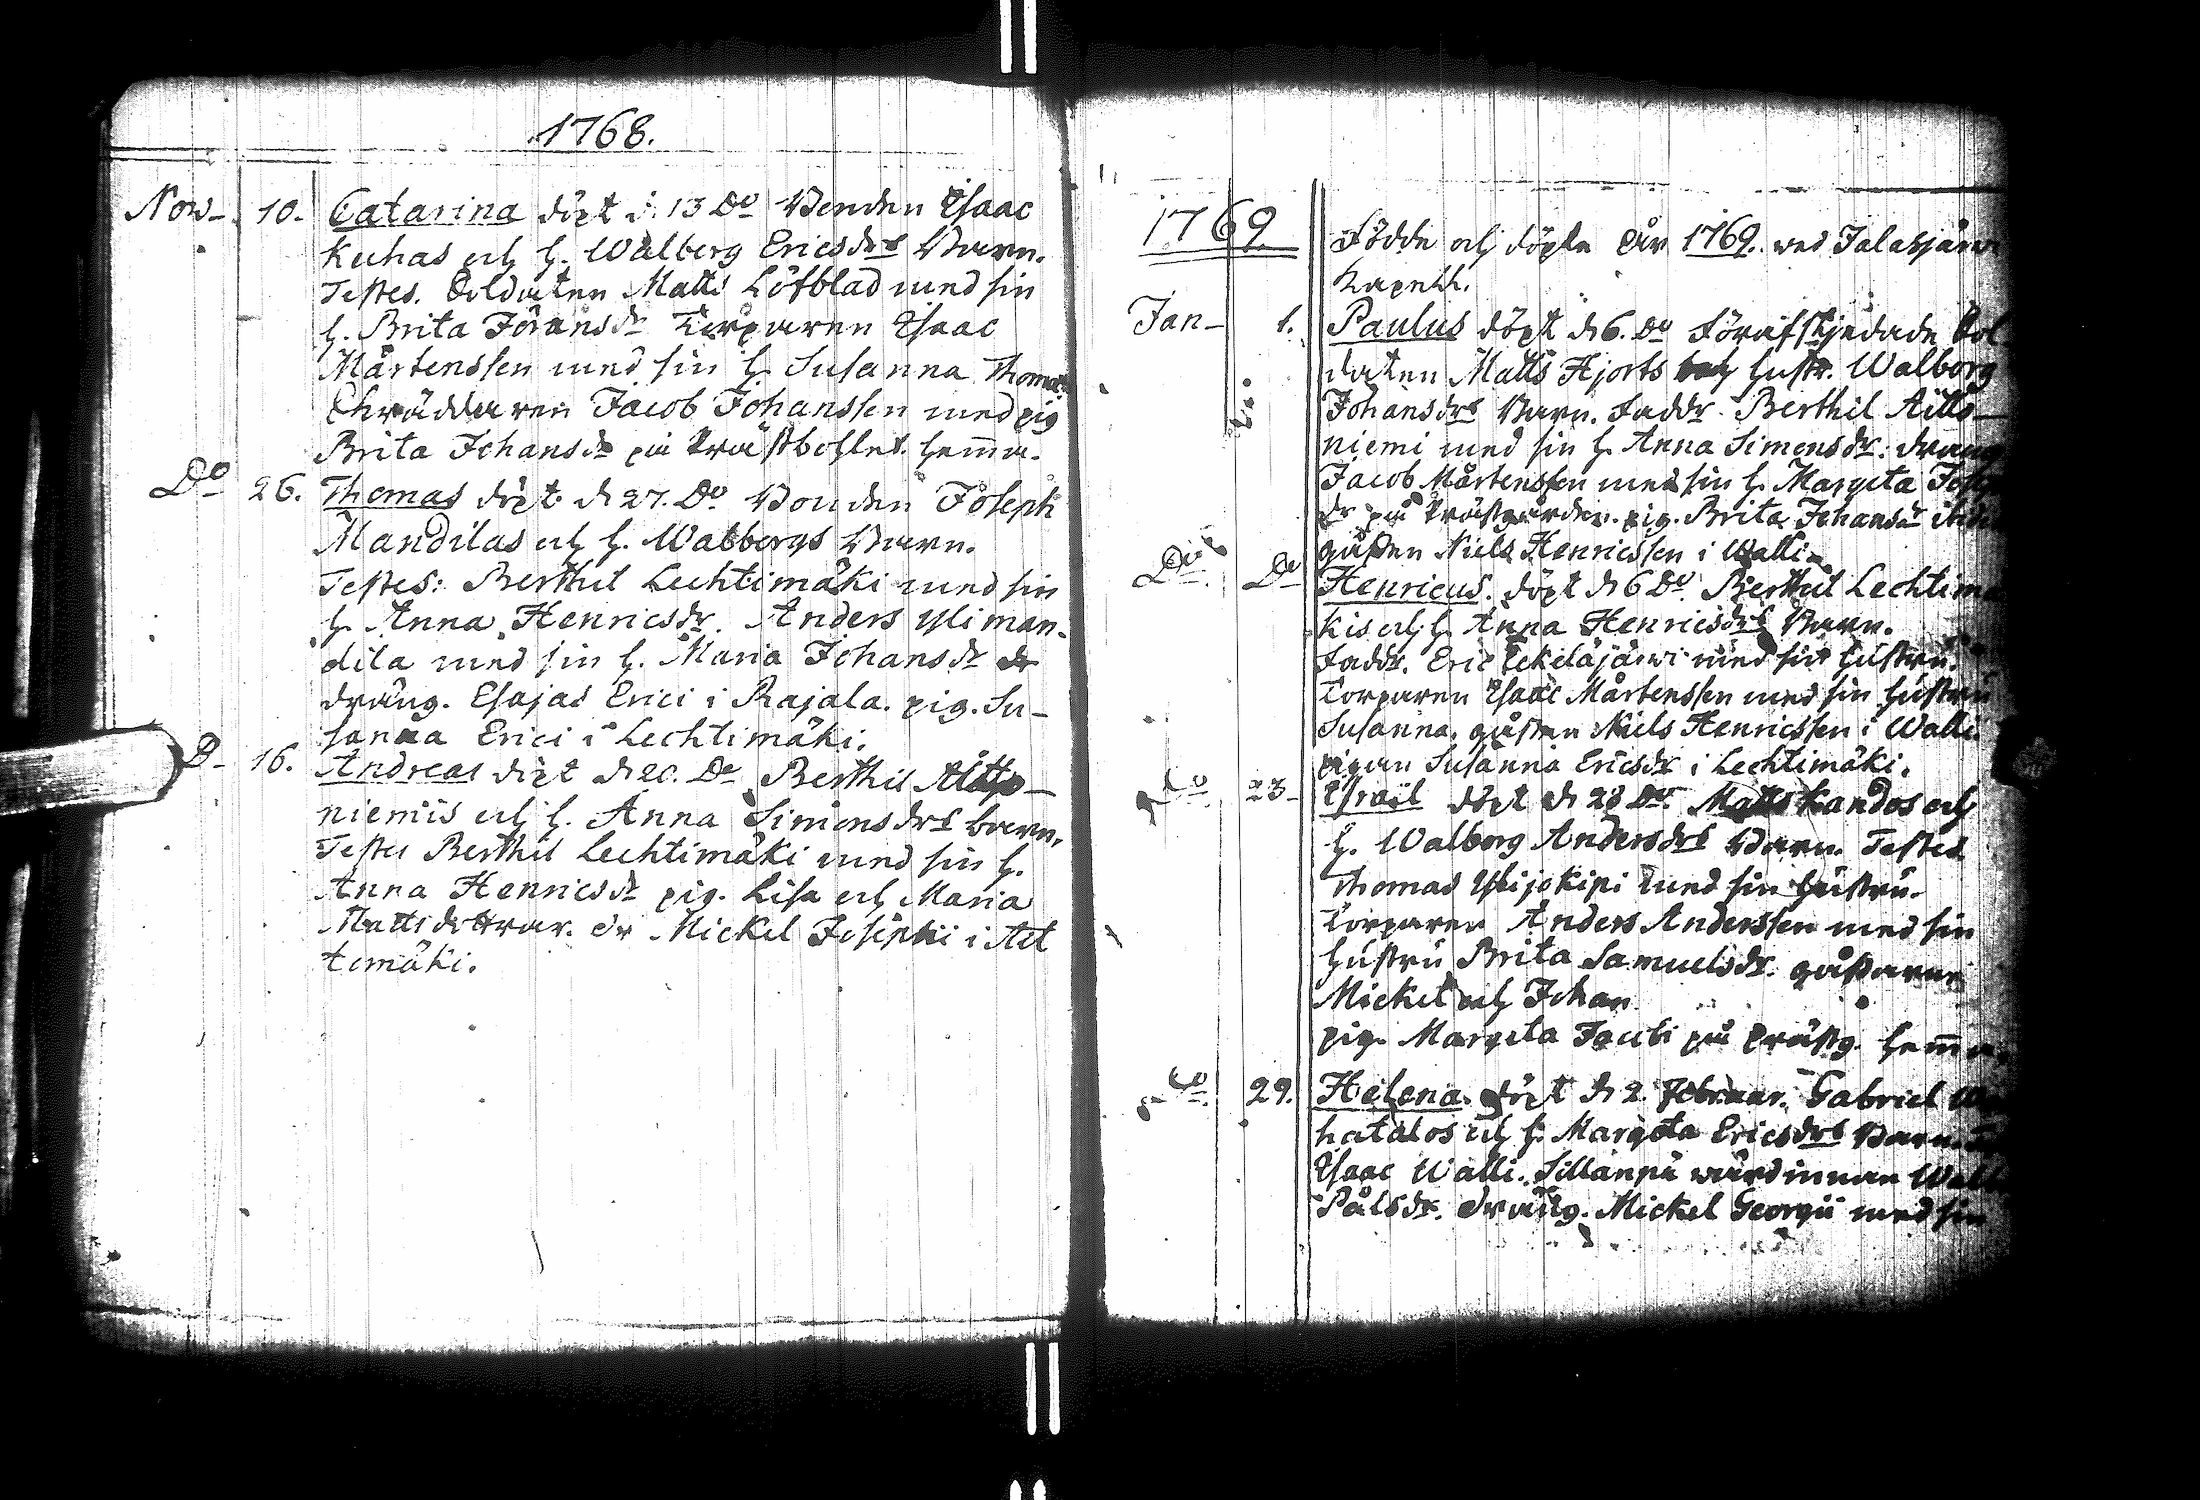 1768.
Nov- 10. Catarina döpt d. 13 Do Bonden Esaac
Kuhas och h. Walberg Ericsdrs Barn.
Testes. Soldaten Matts Löfblad med sin
h. Brita Jöransdr Torparen Esaac
Mårtenssen med sin h. Susanna Thomæ
Skräddaren Jacob Johanssen med pig
Brita Johansdr på Prästbohlet. hem̄a.
Do 26. Thomas döpt d 27. Do Bonden Joseph
Mandilas och h. Walbergs Barn.
Testes: Berthil Lechtimäki med sin
h. Anna Henricsdr. Anders Yliman-
dila med sin h. Maria Johansdr dr
dräng. Esajas Erici i Rajala. pig. Su-
sanna Erici i Lechtimäki.
D- 16. Andreas döpt d 20. Do Berthil Altto-
niemis och h. Anna Simonsdrs barn.
Testes Berthil Lechtimäki med sin h.
Anna Henricsdr pig. Lisa och Maria
Mattsdöttrar. dr Mickel Josephi i
temäki.
1769 Födde och döpte åhr 1769. wed Jalasjärvi
Kapell.
Jan- 1. Paulus döpt d 6. Do föräfskjedade Sol
daten Matts Hjorts och hustr. Walborg
Johansdrs Barn. Faddr. Berthil Aitto-
niemi med sin h. Anna Simonsdr. dräng
Jacob Mårtenssen med sin h. Margeta
dr på Prästgården. pig. Brita Johansdr
gåssen Niels Henricssen i Walli.
Dito Do Henricus. döpt d 6 Do. Berthil Lechtimä
kis och h. Anna Henricsdrs Barn.
Faddr. Eric Kekeläjärwi med sin hustru.
Torparen Esaac Mårtenssen med sin hustru
Susanna, gåssen Niels Henricssen i Walli.
pigan Susanna Ericsdr i Lechtimäki.
Do 23- Esrail döpt d 28 Do. Matts Kandos och
h. Walborg Andersdrs Barn. Testes
Thomas Ylijokipi med sin hustru.
Torparen Anders Anderssen med sin
hustru Brita Samuelsdr. gåssarne
Mickel och Johan
pig. Margeta Jacobi på Prästg. hem̄a.
Do 29. Helena. döpt d 2. Februar. Gabriel
hatalos och h. Margeta Ericsdrs Barn.
Esaac Walli. Sillanpä wärdinnan
Pålsdr. dräng. Mickel Georgii med sin